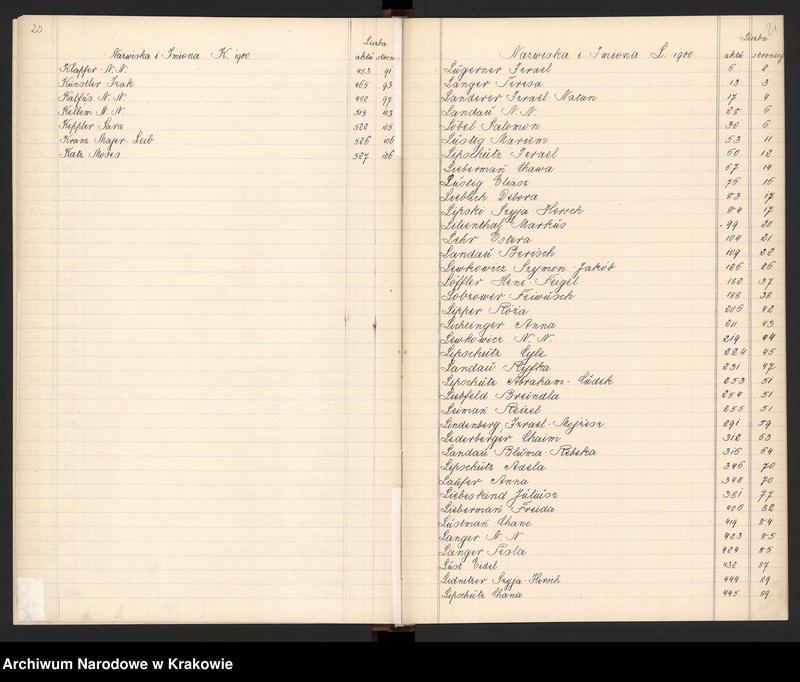 20
Nazwiska i Imiona K. 1900
Liczba
aktu stronicy
Klapfer N.N. 453 91
Künstler Izak 465 93
Kalfus N.N. 492 97
Kellem N.N. 515 103
Keppler Sara 522 105
Kranz Majer-Leib 526 106
Katz Moses 527 106
21
Nazwiska i Imiona L. 1900
Liczba
aktu stronicy
Lügerner Izrael 6 2
Langer Teresa 13 3
Landerer Izrael-Natan 17 4
Landau N.N. 28 6
Löbel Salomon 30 6
Lustig Mariem 53 11
Lipschütz Izrael 60 12
Lieberman Chawa 67 14
Lustig Eliasz 76 16
Lieblich Debora 83 17
Lipski Szyja Hersch 84 17
Lilienthal Markus 99 20
Lehr Estera 104 21
Landau Berisch 109 22
Lewkowicz Szymon Jakób 126 26
Löffler Hene-Feigel 182 37
Lobzower Feiwusch 188 38
Lipper Róża 206 42
Anna 211 43
Lewkowicz N.N. 219 44
Lipschütz Cyle 224 45
Landau Ryfka 231 47
Lipschütz Abraham-Lüdek 253 51
Liebfeld Breindla 254 51
Leiman Reizel 255 51
Lindenberg Izrael-Mojżesz 291 59
Lederberger Chaim 312 63
Landau Bluma-Rebeka 316 64
Lipschütz Adela 346 70
Laufer Anna 348 70
Liebeskind Juliusz 381 77
Lieberman Freida 406 82
Lustman Chane 419 84
Langer N.N. 423 85
Langer Tesla 424 85
Lust Eidel 432 87
Lednitzer Szyja-Hersch 444 89
Lipschütz Chana 445 89
Archiwum Narodowe w Krakowie